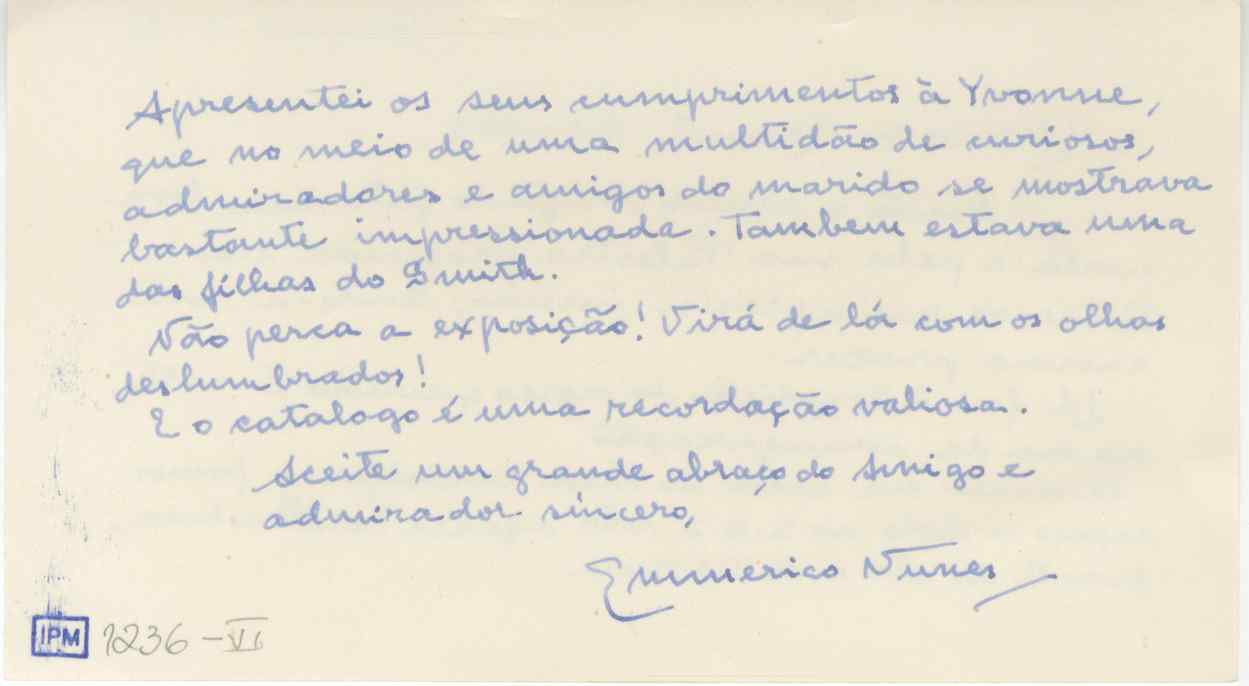 Apresentei os seus cumprimentos à Yvonne,
que no meio de uma multidão de curiosos,
admiradores e amigos do marido se mostrava
bastante impressionada. Tambem estava uma
das filhas do Smith.
Não perca a exposição! Virá de lá com os olhos
deslumbrados!
E o catalogo é uma recordação valiosa.
Aceite um grande abraço do Amigo e
admirador sincero,
Emmerico Nunes
IPM 1236-VI